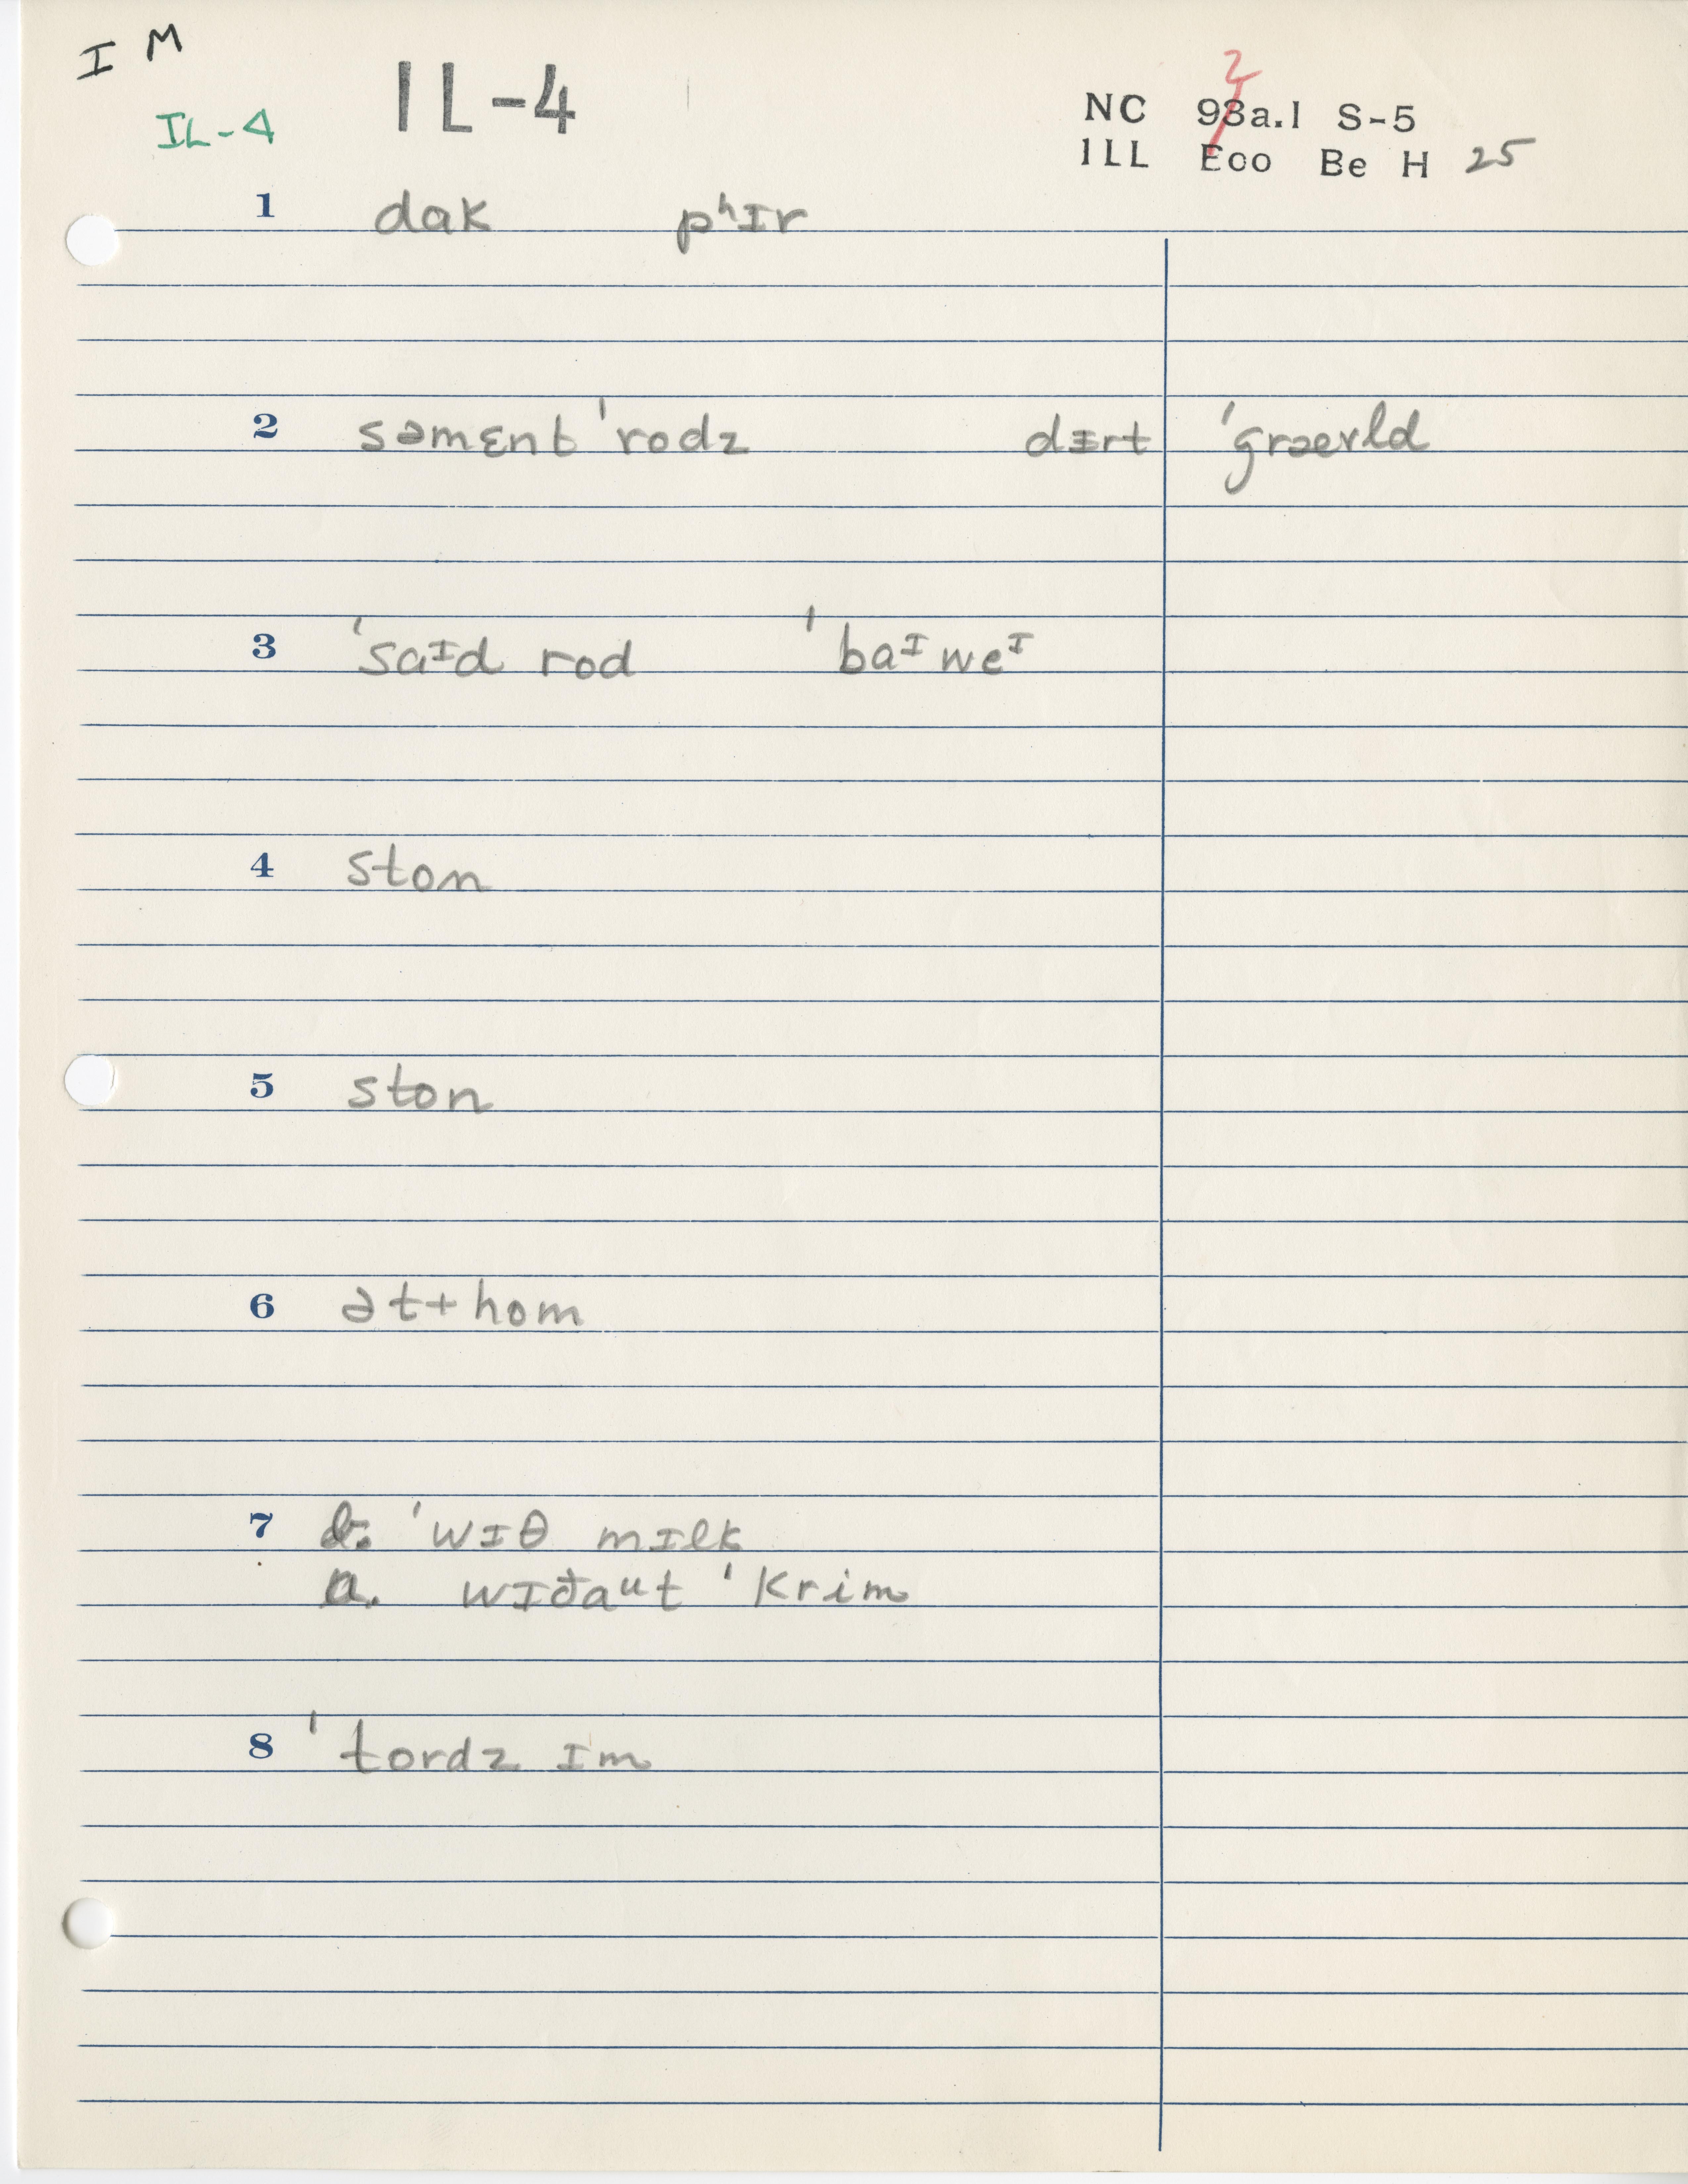 I M
IL-4 IL-4 NC 93a.1 S-5
2
ILL Eoo Be H 25
1 dak pʰɪr
2 səmɛnt ˈrodz dɪrt ˈgrævld
3 ˈsaᴵd rod ˈbaᴵweᴵ
4 ston
5 ston
6 ət+hom
7 b. ˈwɪθ mɪlk
a. wɪðaᵘt ˈkrim
8 ˈtordz ɪm